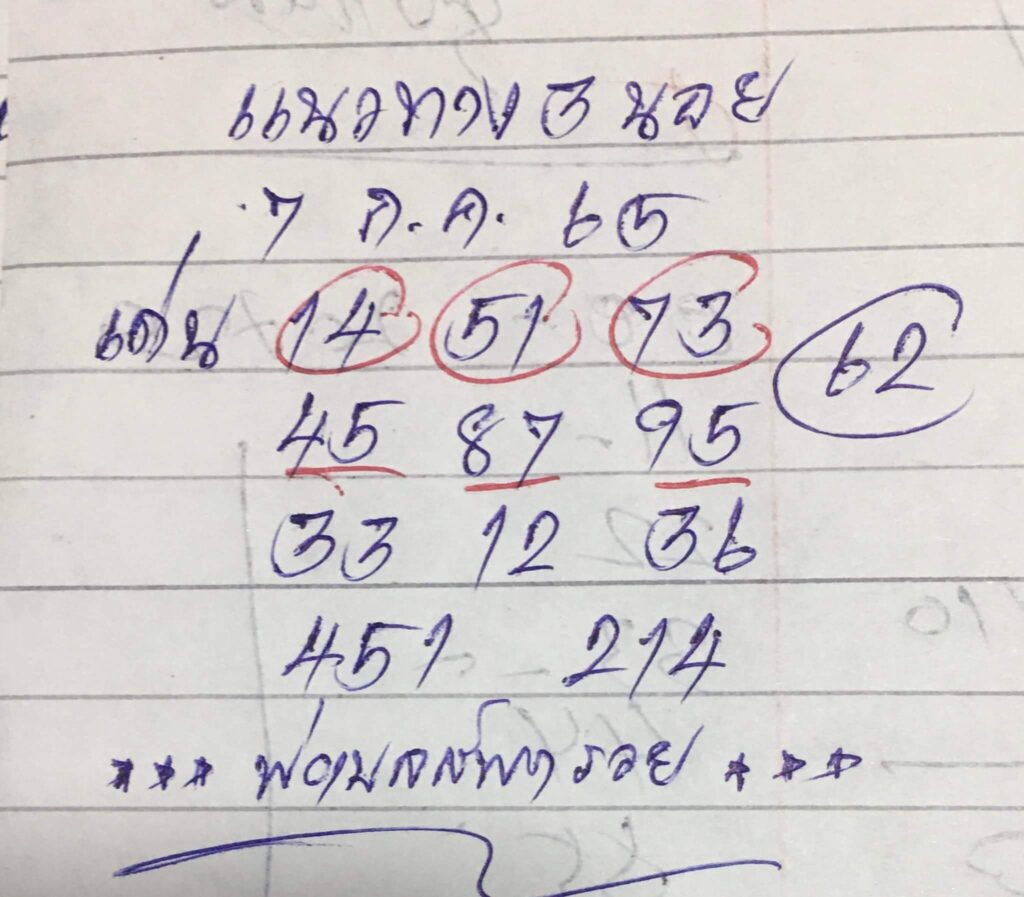 แนวทาง ฮ นอย
7 ก.ค. 65
เด่น 14 51 73 62
45 87 95
33 12 36
451 214
*** รวย ***